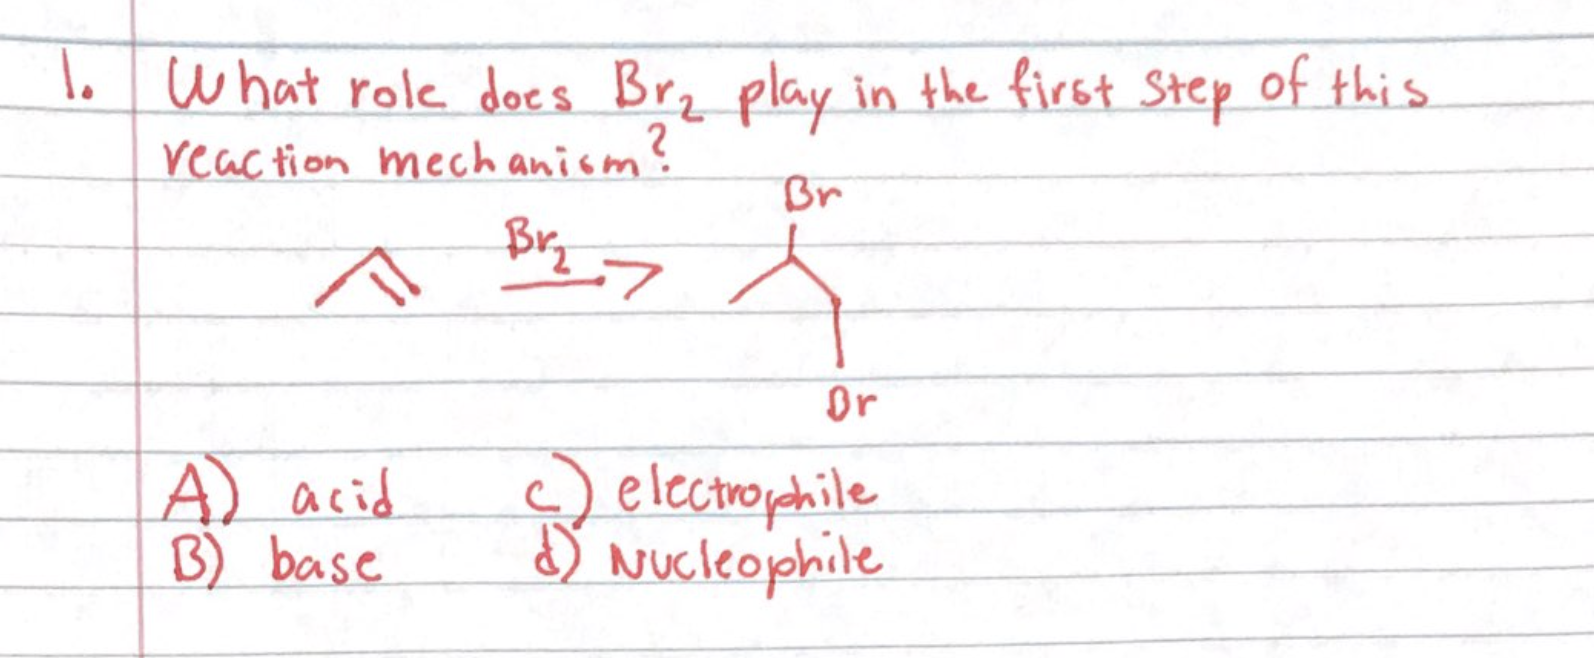 1. What role does Br₂ play in the first step of this
reaction mechanism?
Br
Br₂
Br
A) acid c) electrophile
B) base d) Nucleophile